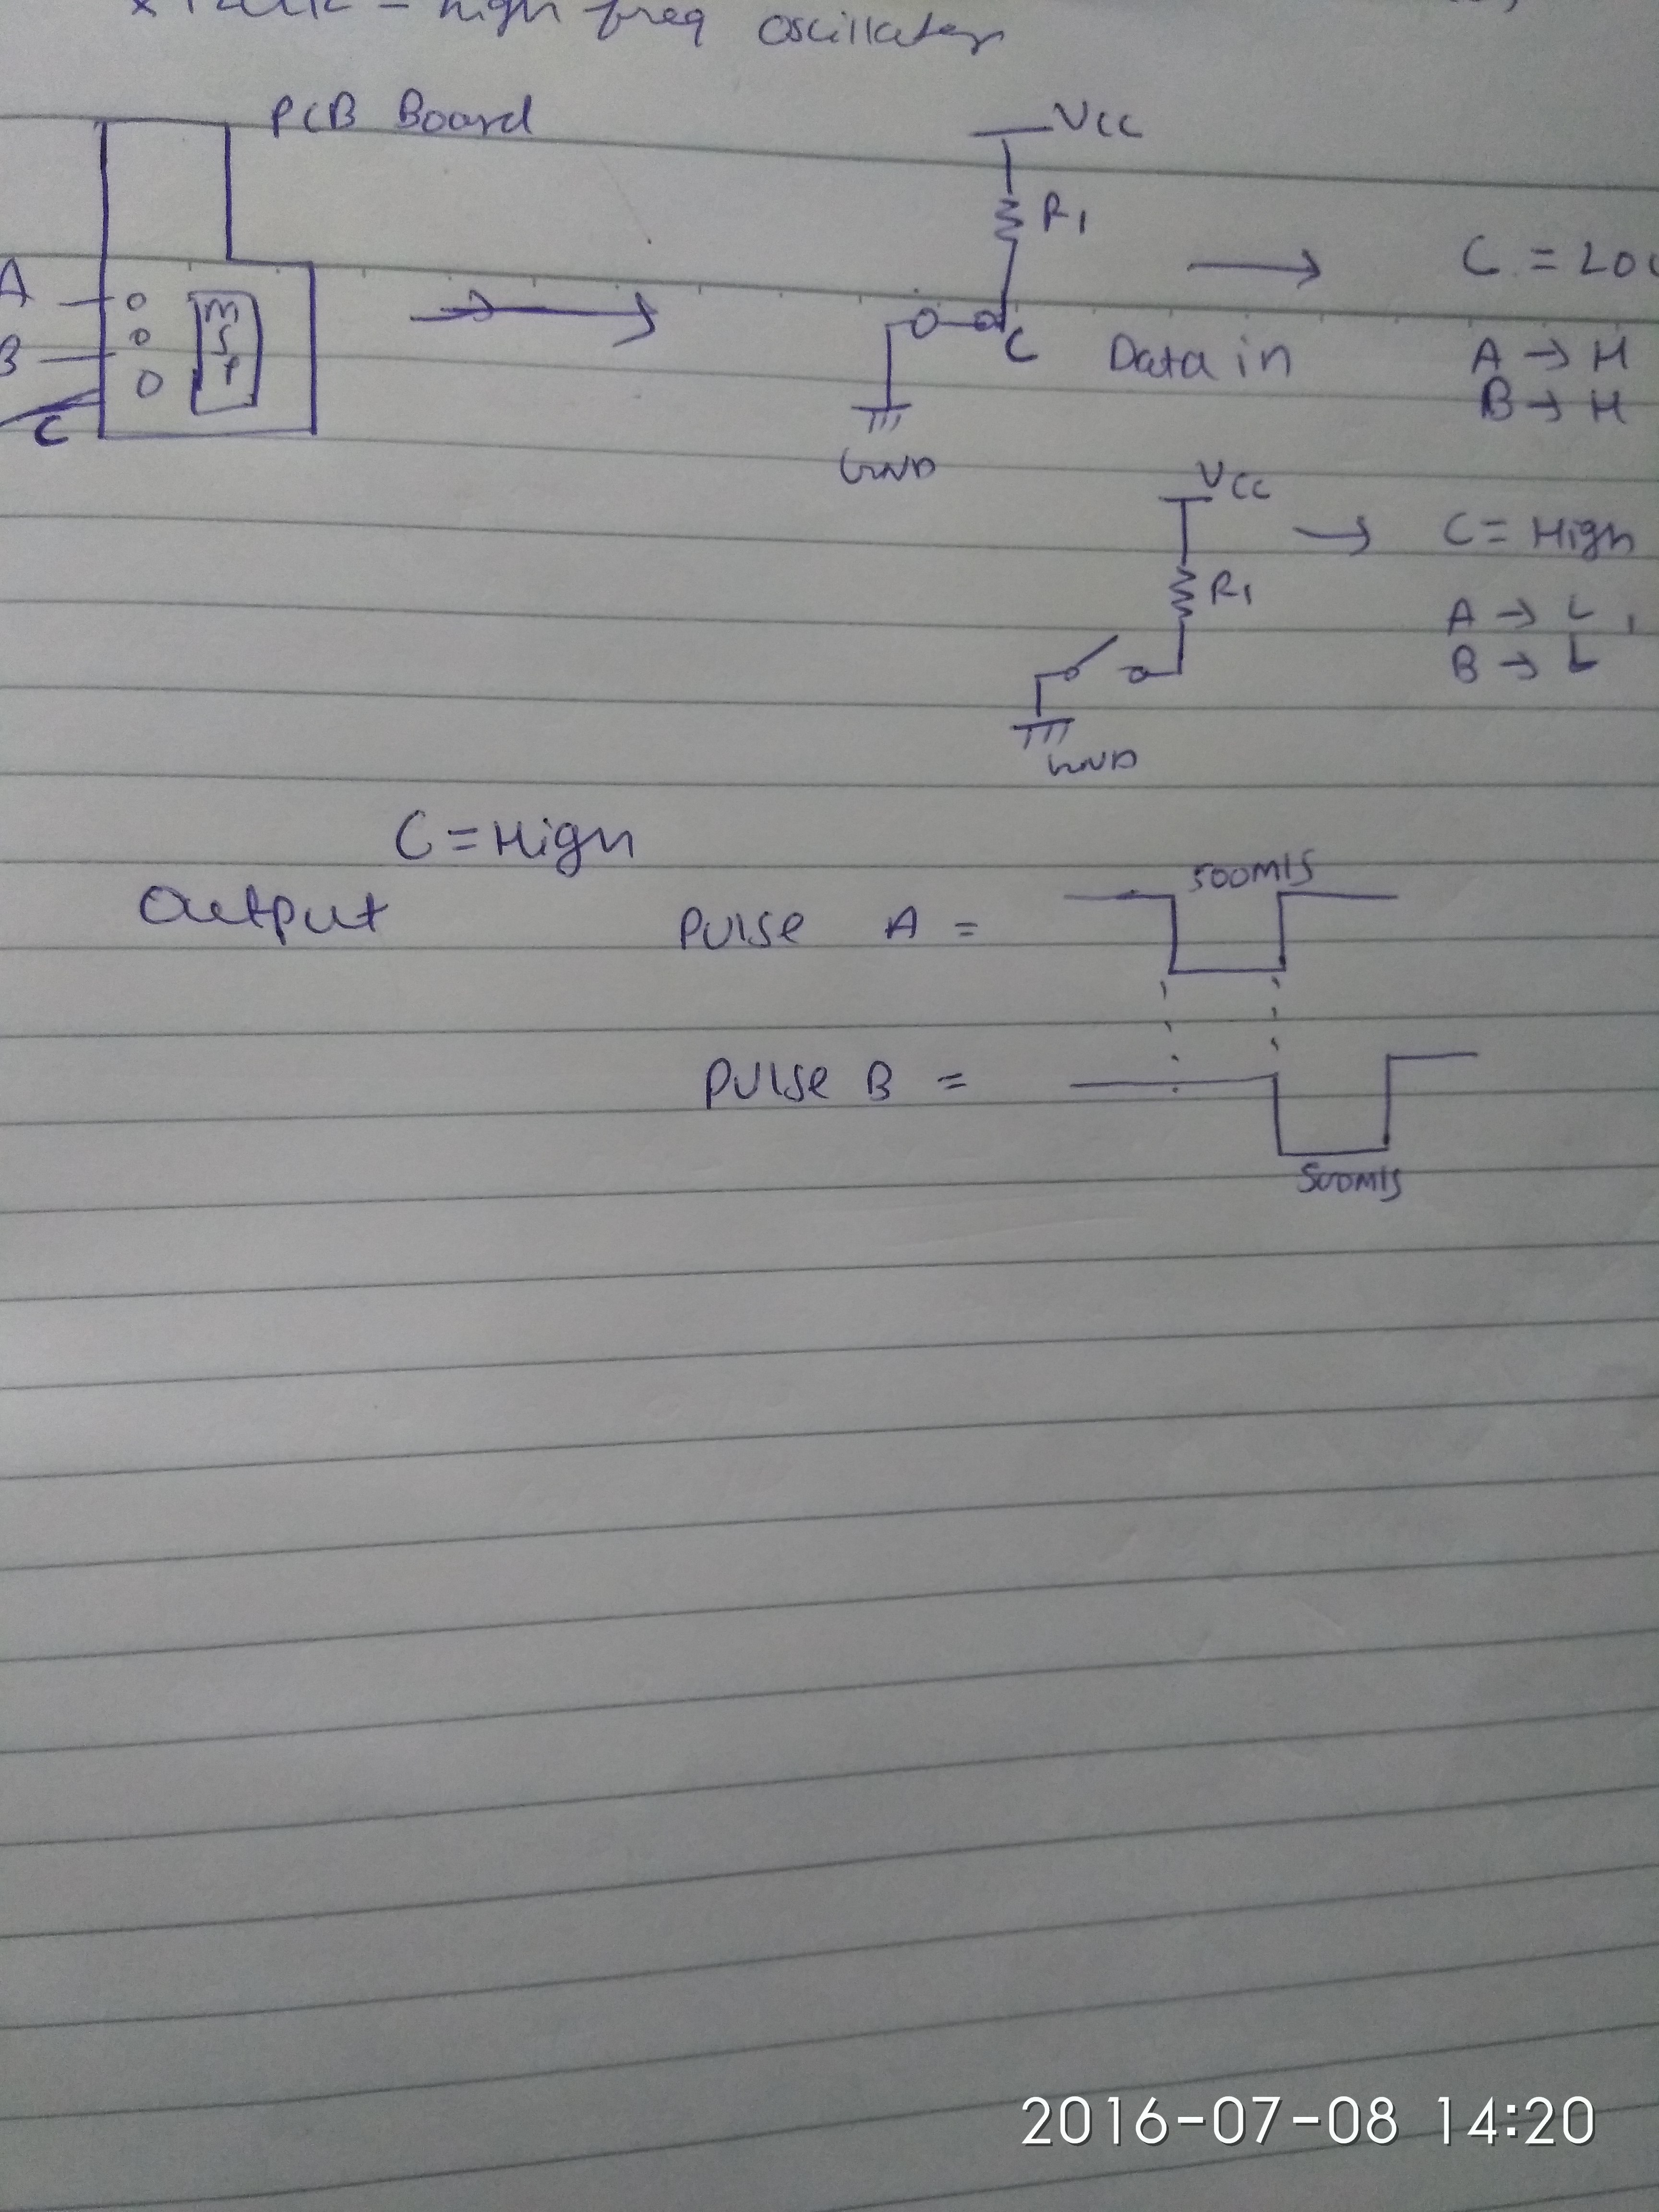 high freq oscillator
PCB Board
VCC
R1
A
B
C
MSP
C
Data in
GND
C = LOW
A → H
B → H
VCC
R1
GND
C = High
A → L,
B → L
C = High
Output
Pulse A =
500MIS
Pulse B =
500MIS
2016-07-08 14:20